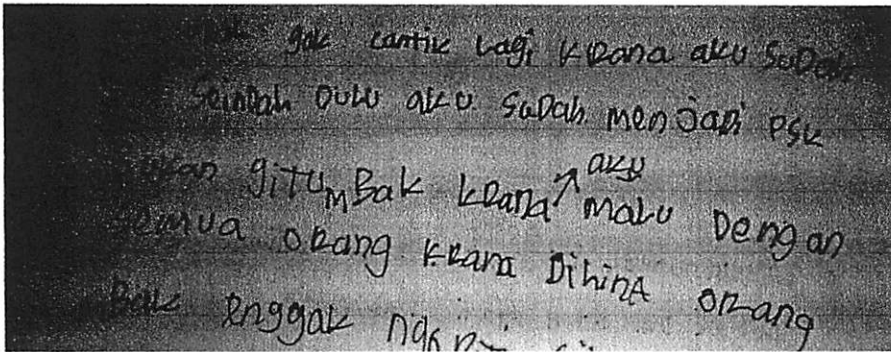 gak cantik lagi KRana aku SuDah
Seindah Dulu aku SuDah menjaDi PSK
gitu mBak KRana aku malu Dengan
Semua oRang KRana DihinA oRang
Bak enggak